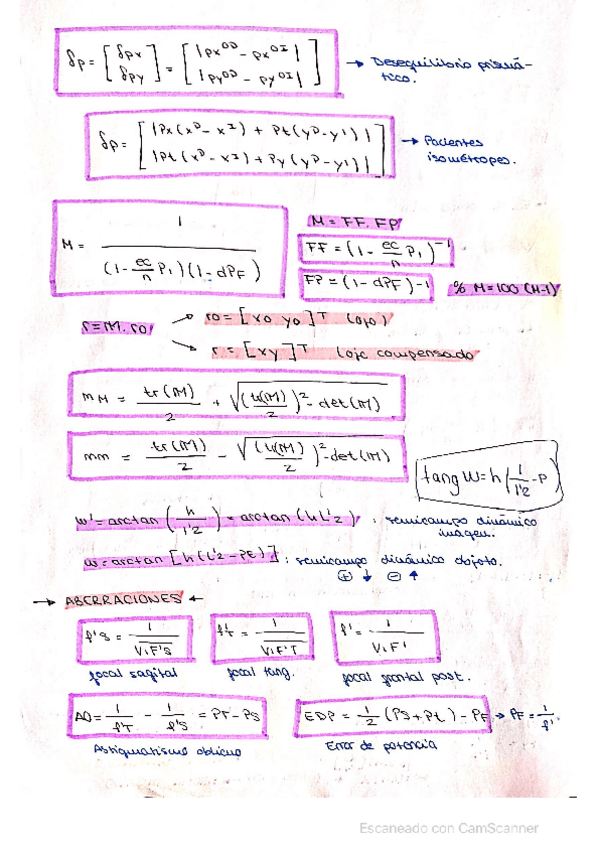 δp = [δpx δpy] = [|px^OD - px^OI| |py^OD - py^OI|] → Desequilibrio prismático.
δp = [|Px(x^D - x^I) + Pt(y^D - y^I)| |Pt(x^D - x^I) + Py(y^D - y^I)|] → Pacientes isométropes.
M = 1 / (1 - ec/n P1)(1 - dPF)
M = FF. FP
FF = (1 - ec/n P1)^-1
FP = (1 - dPF)^-1
% M = 100 (M-1)
r = M. ro
ro = [xo yo]^T (ojo)
r = [xy]^T (ojo compensado
mM = tr(M)/2 + √((tr(M)/2)² - det(M))
mm = tr(M)/2 - √((tr(M)/2)² - det(M))
tang w = h (1/l'2 - P
w' = arctan (h/l'2) = arctan (hL'2) : semicampo dinámico imagen.
w = arctan [h(L'2 - PE)] : semicampo dinámico objeto.
⊕ ↓ ⊖ ↑
→ ABERRACIONES ←
f'S = 1/V1F'S
f'T = 1/V1F'T
f' = 1/V1F'
focal sagital
focal tang.
focal frontal post.
AO = 1/f'T - 1/f'S = PT - PS
EDP = 1/2 (PS + Pt) - PF → PF = 1/f'
Astigmatismo oblicuo
Error de potencia
Escaneado con CamScanner